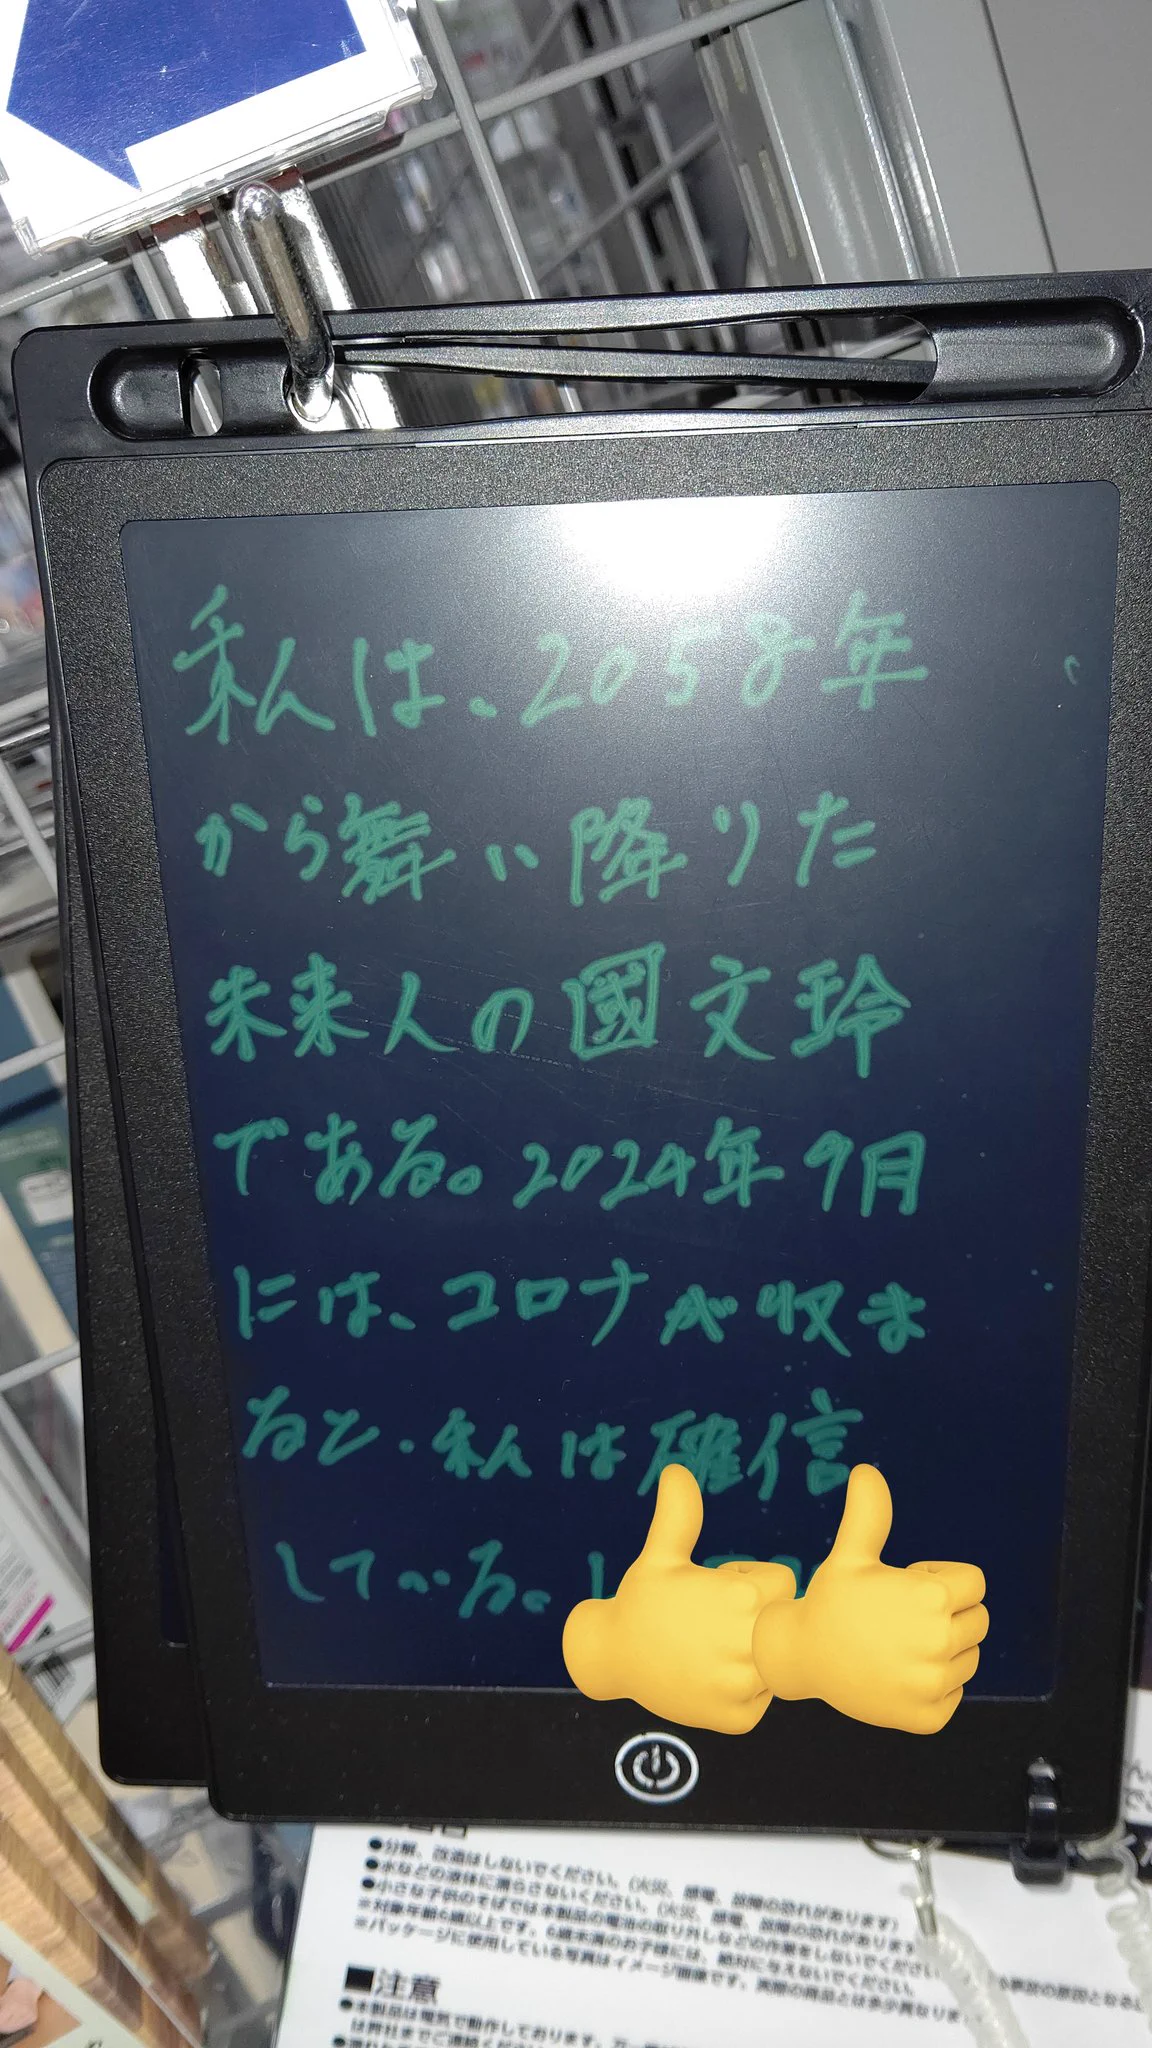 私は、2058年
から舞い降りた
未来人の國文玲
である。2024年9月
には、コロナが収ま
ると、私は確信
している。
●分解、改造はしないでください。(火災、感電、故障の恐れがあります)
●水などの液体に濡らさないください。(火災、感電、故障の恐れがあります)
●小さな子供のそばでは本製品の電池の取り外しなどの作業をしないでください
※対象年齢6歳以上です。6歳未満のお子様には、絶対に与えないでください。
※パッケージに使用している写真はイメージ画像です。実際の商品とは多少異なりま
■注意
●本製品は電気で動作しております。万一